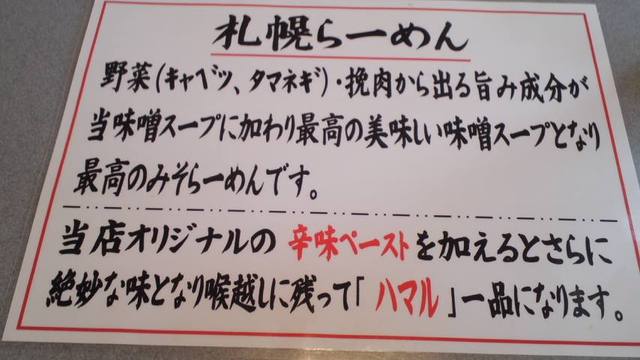 札幌らーめん
野菜(キャベツ、タマネギ)・挽肉から出る旨み成分が
当味噌スープに加わり最高の美味しい味噌スープとなり
最高のみそらーめんです。
当店オリジナルの辛味ペーストを加えるとさらに
絶妙な味となり喉越しに残って「ハマル」一品になります。